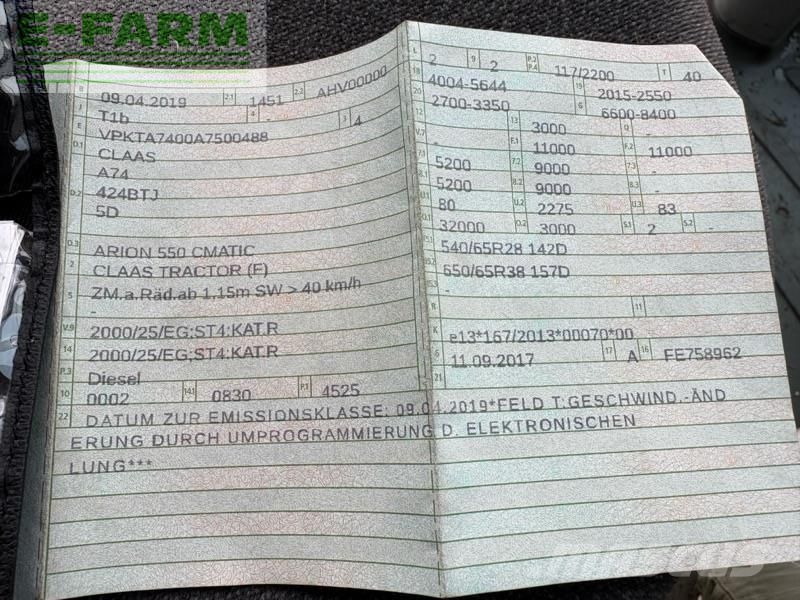 E-FARM
B 09.04.2019 2.1 1451 2.2 AHV00000
J T1b 4 - 3 4
E VPKTA7400A7500488
D.1 CLAAS
A74
D.2 424BTJ
5D
D.3 ARION 550 CMATIC
2 CLAAS TRACTOR (F)
5 ZM.a.Räd.ab 1,15m SW > 40 km/h
-
V.9 2000/25/EG;ST4:KAT.R
14 2000/25/EG;ST4:KAT.R
P.3 Diesel
10 0002 14.1 0830 P.1 4525
L 2 9 2 P.2 P.4 117/2200 T 40
18 4004-5644 19 2015-2550
20 2700-3350 G 6600-8400
12 - 13 3000 Q -
V.7 - F.1 11000 F.2 11000
7.1 5200 7.2 9000 7.3 -
8.1 5200 8.2 9000 8.3 -
U.1 80 U.2 2275 U.3 83
O.1 32000 O.2 3000 S.1 2 S.2 -
15.1 540/65R28 142D
15.2 650/65R38 157D
-
R 11
K e13*167/2013*00070*00
6 11.09.2017 17 A 16 FE758962
21
22 DATUM ZUR EMISSIONSKLASSE: 09.04.2019*FELD T:GESCHWIND.-ÄND
ERUNG DURCH UMPROGRAMMIERUNG D. ELEKTRONISCHEN
LUNG***